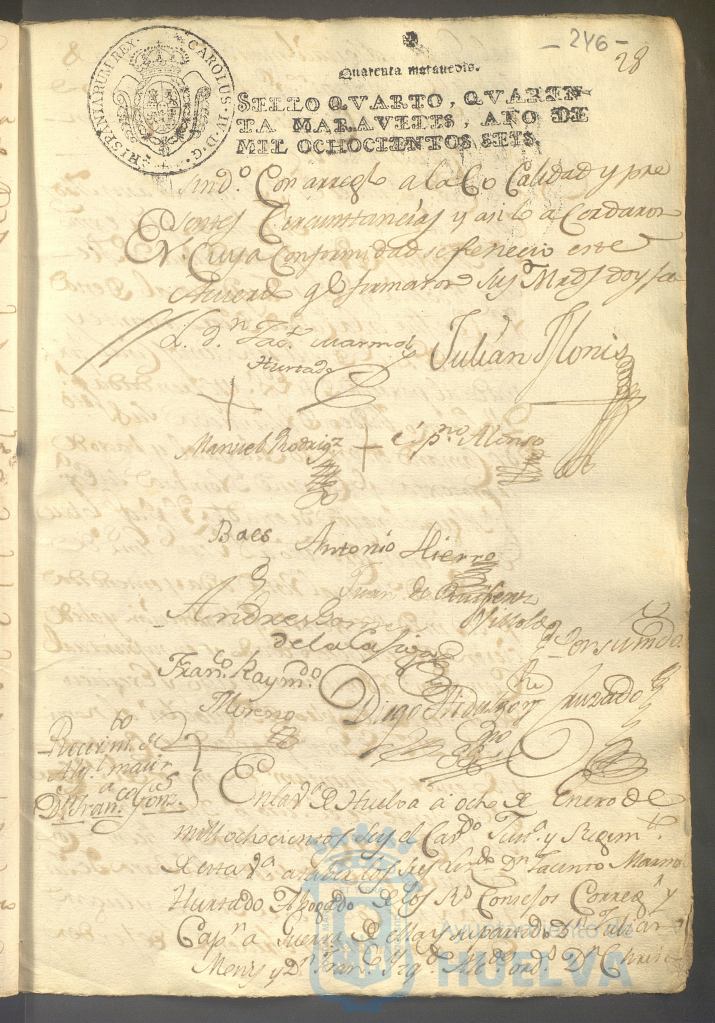 - 246 -
28
HISPANIARUM REX. CAROLUS IV D.G.
Quarenta maravedis.
SELLO QVARTO, QVAREN-
TA MARAVEDIS, AÑO DE
MIL OCHOCIENTOS SEIS.
Sind.º Con arreglo a la Calidad y pre
sentes Circunstancias y asi lo acordaron
Cuya Conformidad se fenecio este
Acuerdo q.e firmaron Sus Mrds doy fee
L. d.n Jac.to Marmol y
Hurtado
Julian Monis
Manuel Rodrig.z
Alonso
Baes
Antonio Hierro
Juan de
Andres
de la Casi
Fran.co Raym.do
Moreno
Diego Hidalgo
Recivim.to de
Alg.l maior
D.n Fran.co Gonz.
En la v.a de Huelva a ocho de Enero de
mill ochocientos seis el Cav.do Just.a y Regim.to
de esta v.a a saber los Sres Lic.do D.n Jacinto Marmol
Hurtado Abogado de los R.s Consejos Correx.r y
Cap.n a Guerra de ella y su partido D.n Julian
Monis y D.n Fran.co de ord.s D.n Chris-
Ayuntamiento de
HUELVA